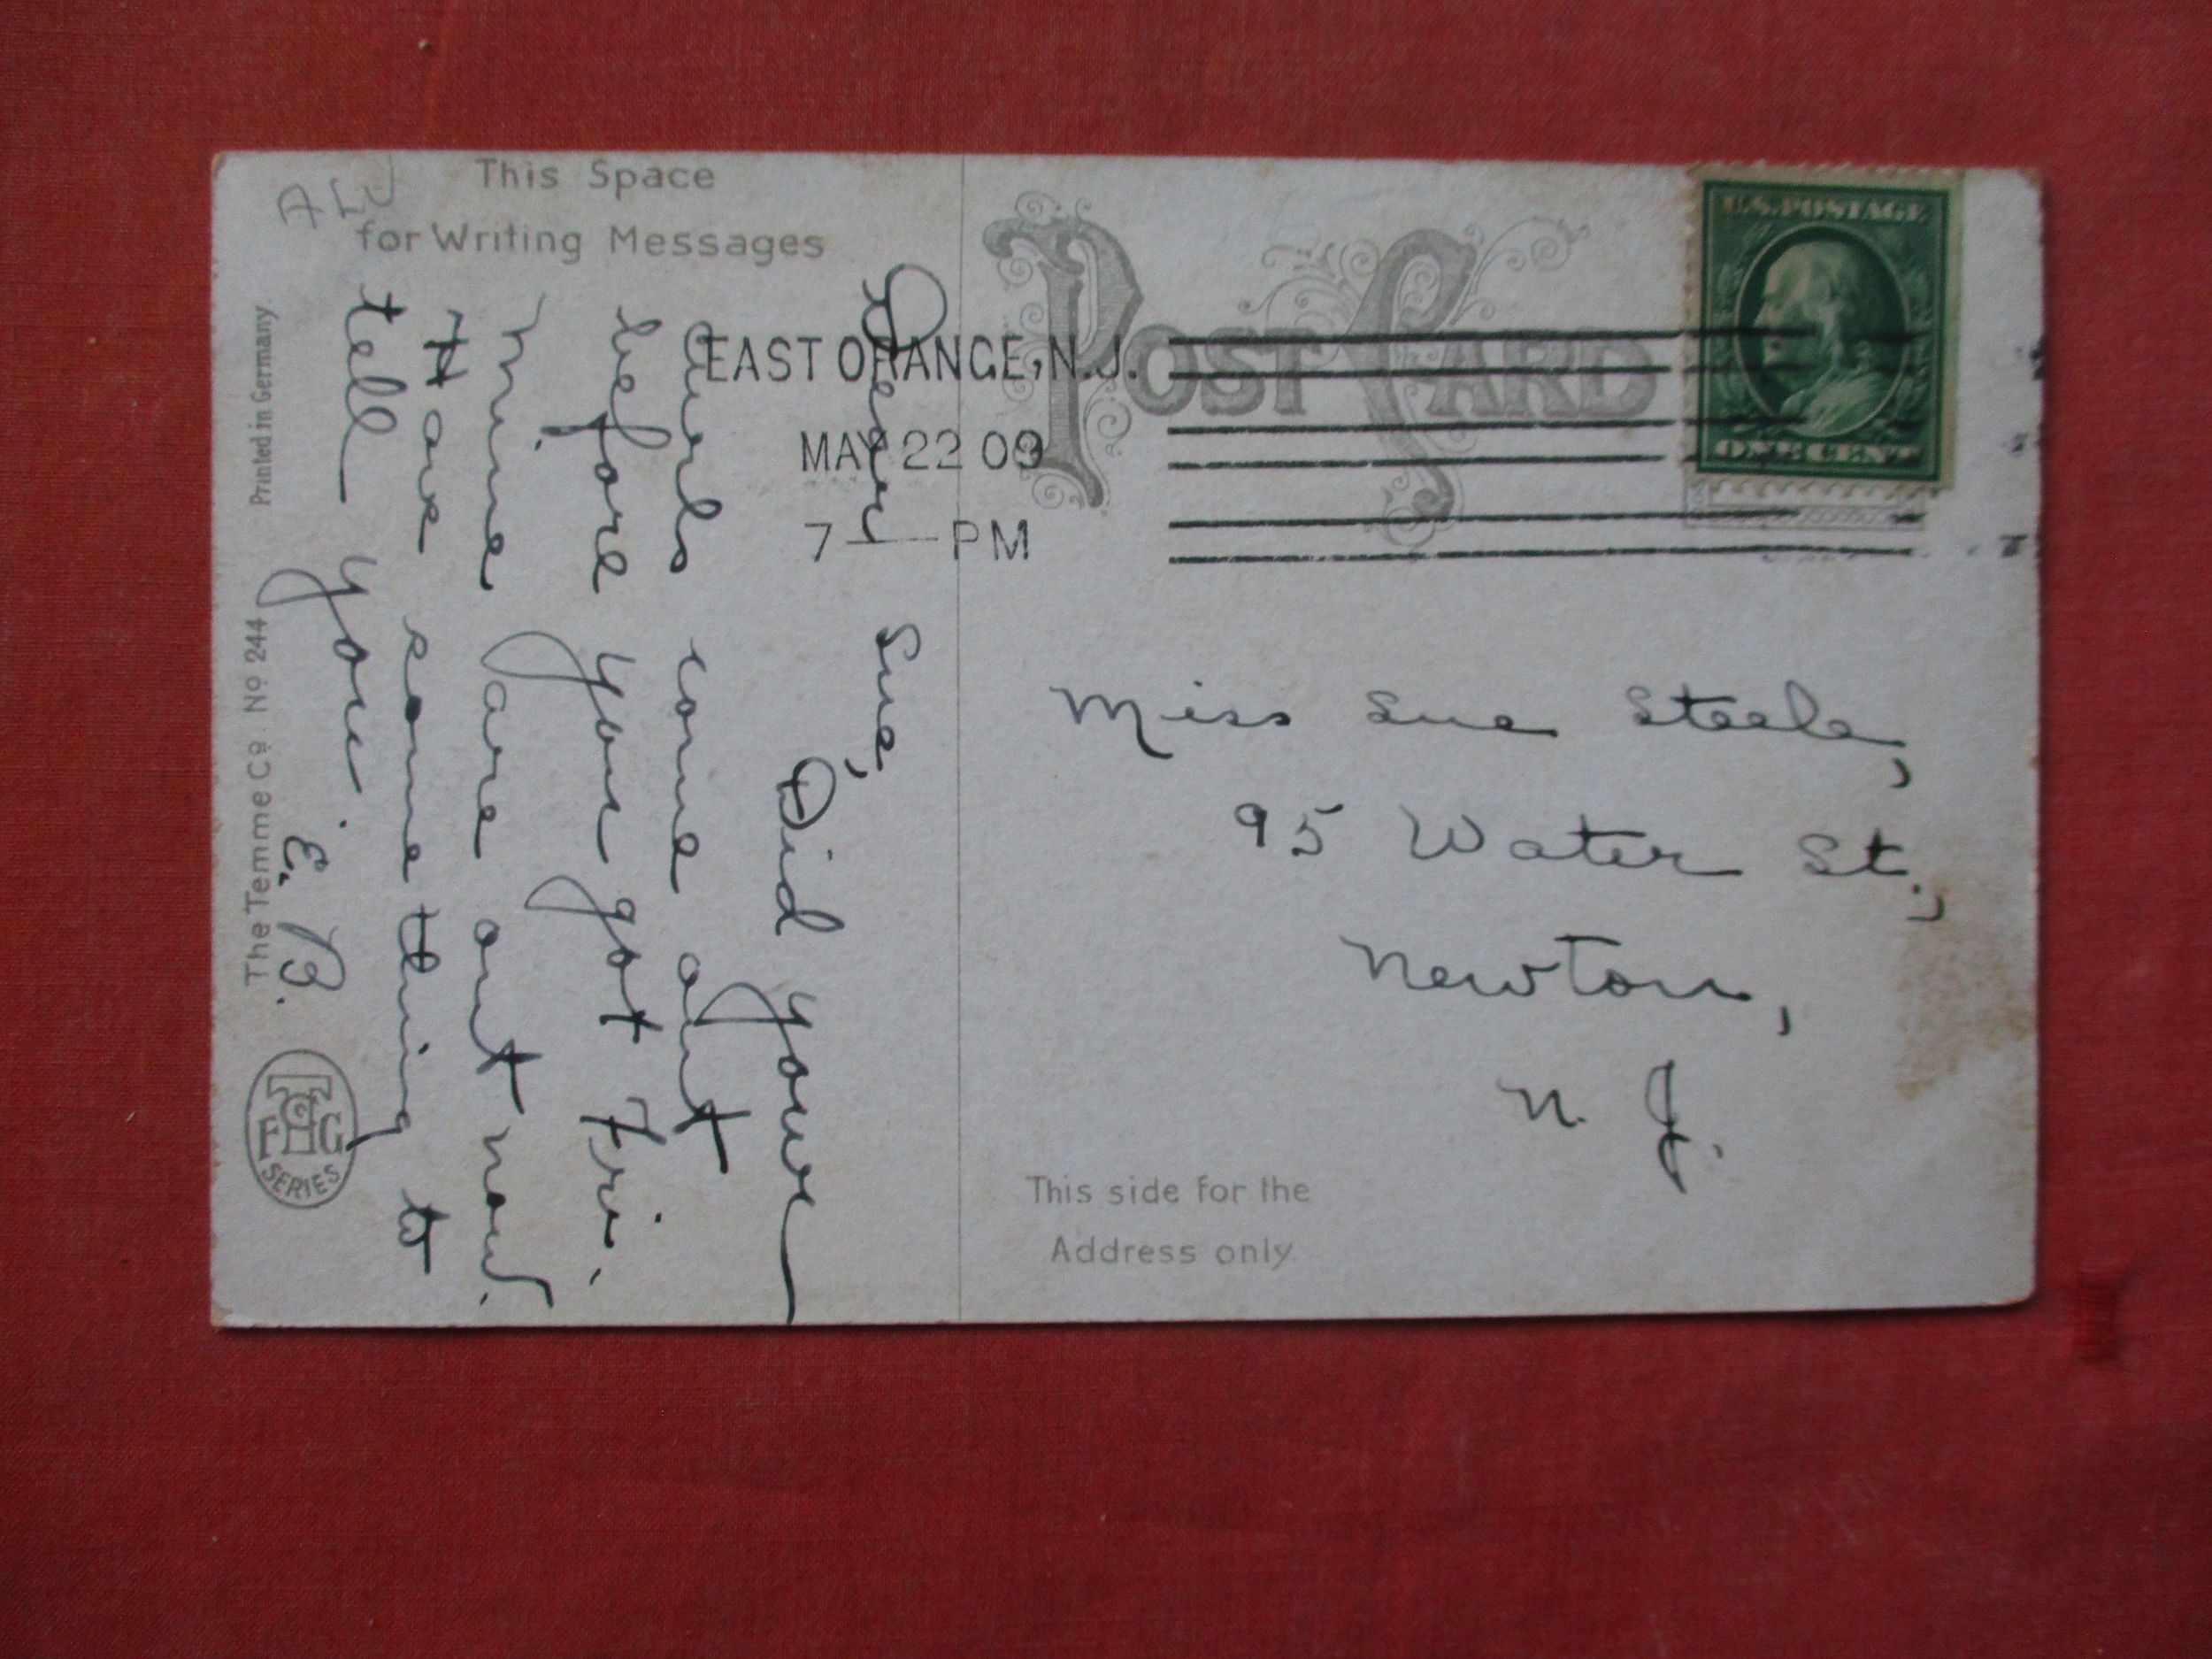 This Space
for Writing Messages
POST CARD
U.S. POSTAGE
ONE CENT
EAST ORANGE, N.J.
MAY 22 09
7 — PM
Dear Sue,
Did your
curls come out
before you got Fri.,
Mine are out now.
Have something to
tell you.
E. B.
Miss Sue Steele,
95 Water St.,
Newton,
N. J.
This side for the
Address only.
Printed in Germany.
The Temme Co. No. 244
T
F G
SERIES